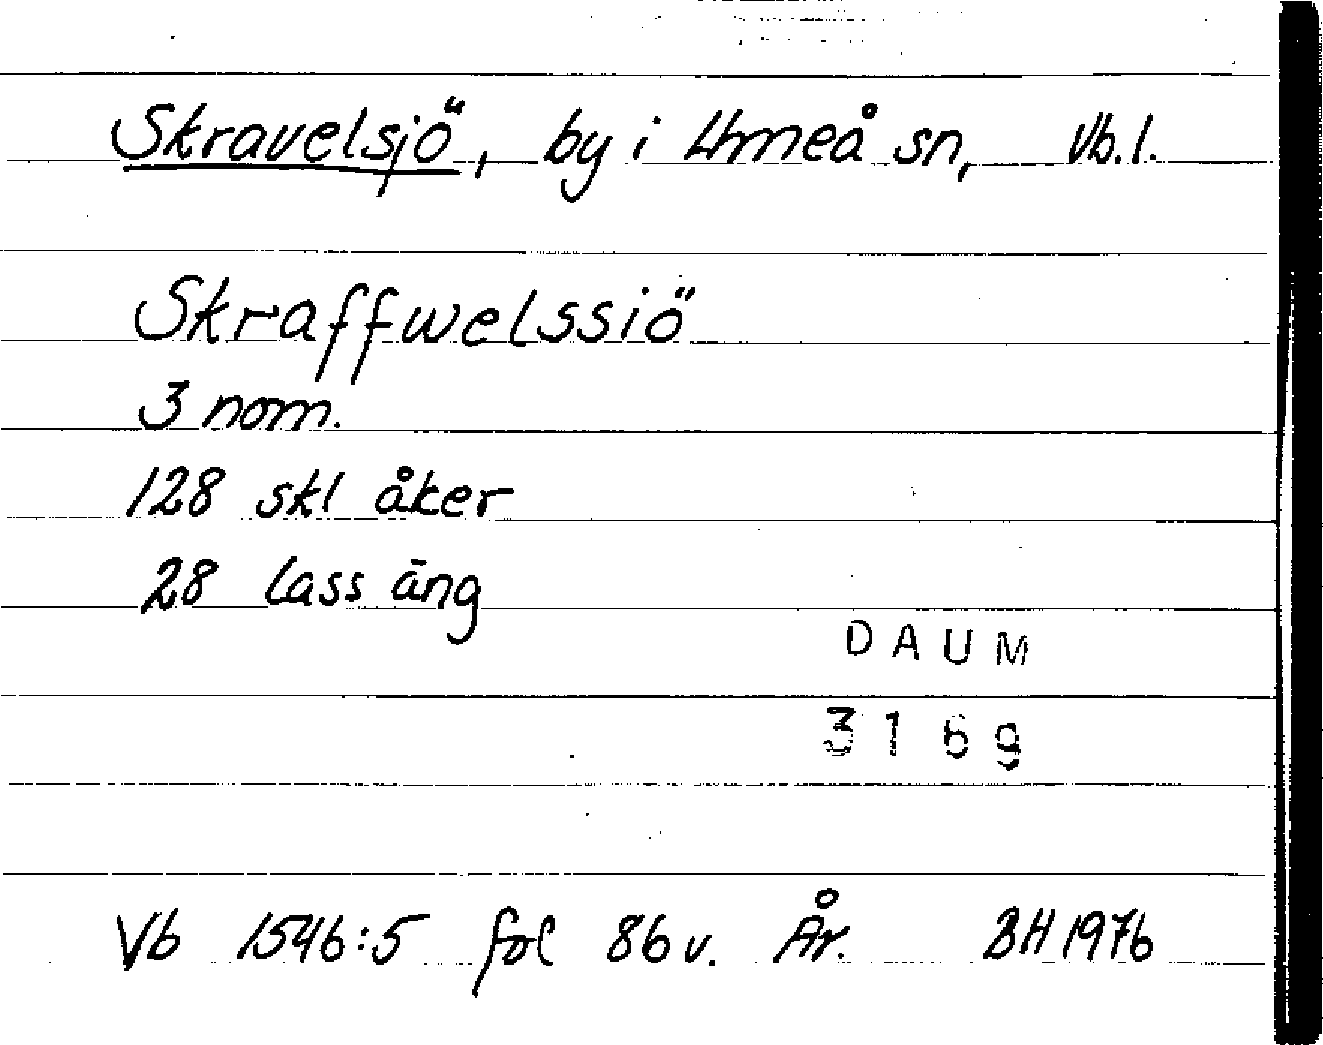 Skravelsjö, by i Umeå sn, Vb.l.
Skraffwelssiö
3 nom.
128 skl åker
28 lass äng
DAUM
3169
Vb 1546:5 fol 86 v. År. BH 1976